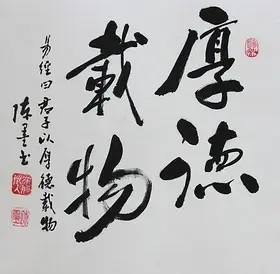 厚德
載物
易經曰君子以厚德載物
陈墨书